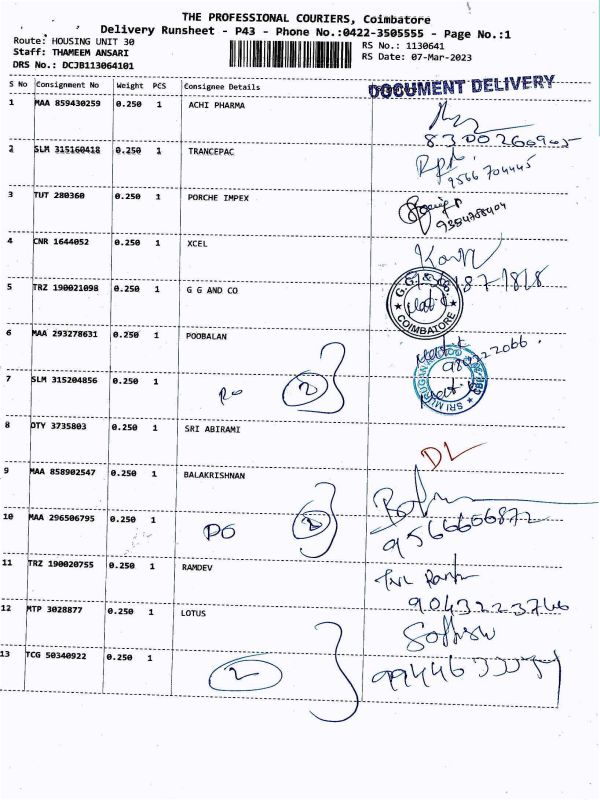 THE PROFESSIONAL COURIERS, Coimbatore
Delivery Runsheet - P43 - Phone No.:0422-3505555 - Page No.:1
Route: HOUSING UNIT 30 RS No.: 1130641
Staff: THAMEEM ANSARI RS Date: 07-Mar-2023
DRS No.: DCJB113064101
S No Consignment No Weight PCS Consignee Details DOCUMENT DELIVERY
1 MAA 859430259 0.250 1 ACHI PHARMA
2 SLM 315160418 0.250 1 TRANCEPAC
9566704445
3 TUT 280360 0.250 1 PORCHE IMPEX
4 CNR 1644052 0.250 1 XCEL
5 TRZ 190021098 0.250 1 G G AND CO
G.G. & Co
COIMBATORE
6 MAA 293278631 0.250 1 POOBALAN
7 SLM 315204856 0.250 1
2
8 OTY 3735803 0.250 1 SRI ABIRAMI
DL
9 MAA 858902547 0.250 1 BALAKRISHNAN
10 MAA 296506795 0.250 1
PO 2
9566606872
11 TRZ 190020755 0.250 1 RAMDEV
12 MTP 3028877 0.250 1 LOTUS
9043223746
13 TCG 50340922 0.250 1
2